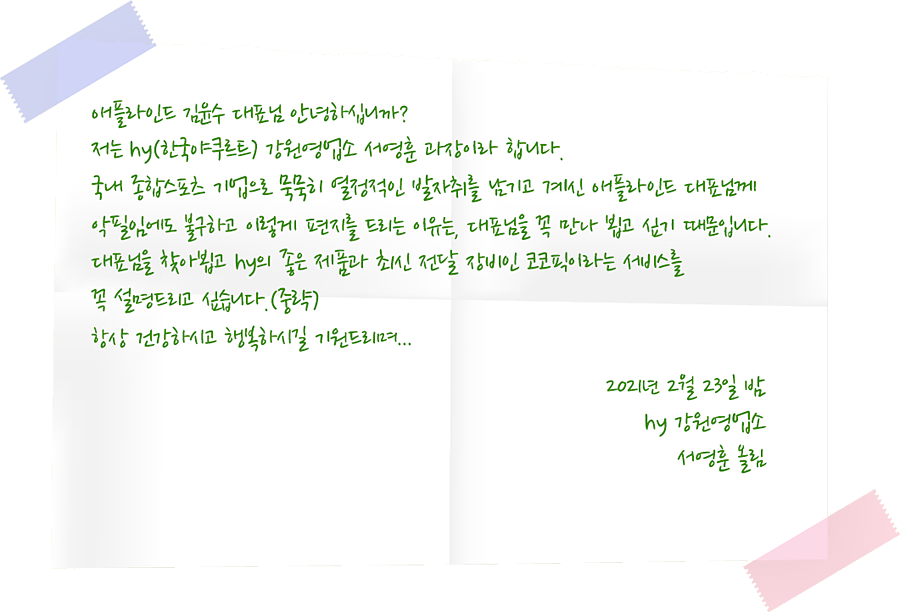 애플라인드 김윤수 대표님 안녕하십니까?
저는 hy(한국야쿠르트) 강원영업소 서영훈 과장이라 합니다.
국내 종합스포츠 기업으로 묵묵히 열정적인 발자취를 남기고 계신 애플라인드 대표님께
악필임에도 불구하고 이렇게 편지를 드리는 이유는, 대표님을 꼭 만나 뵙고 싶기 때문입니다.
대표님을 찾아뵙고 hy의 좋은 제품과 최신 전달 장비인 코코픽이라는 서비스를
꼭 설명드리고 싶습니다.(중략)
항상 건강하시고 행복하시길 기원드리며...
2021년 2월 23일 밤
hy 강원영업소
서영훈 올림